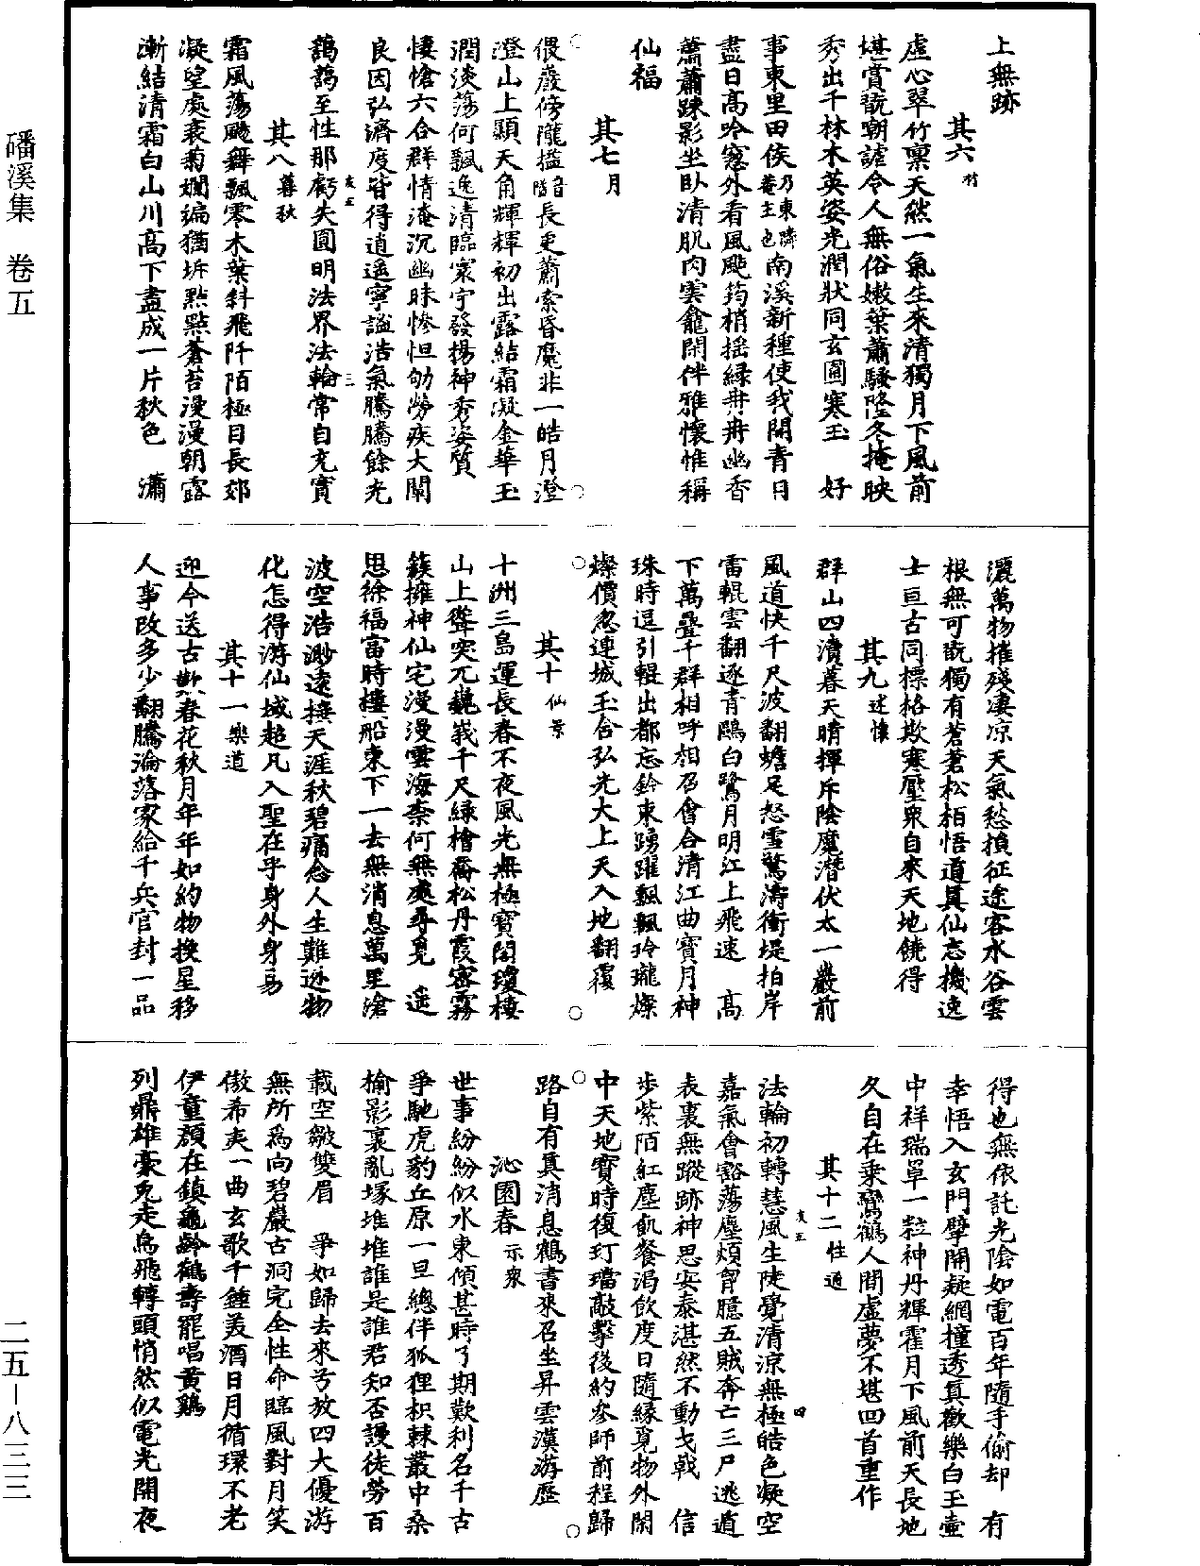 上無跡
其六 竹
虛心翠竹稟天然一氣生來清獨月下風前
堪賞翫朝謔令人無俗嫩葉蕭騷隆冬掩映
秀出千林木英姿光潤狀同玄圃寒玉 好
事東里田侯乃東鄰菴主也南溪新種使我開青目
盡日高吟窻外看風颭筠梢搖綠冉冉幽香
蕭蕭踈影坐臥清肌肉雲龕閑伴雅懷惟稱
仙福
其七 月
偎巖傍隴搕音榼長更蕭索昏魔非一皓月澄
澄山上顯天角輝輝初出露結霜凝金華玉
潤淡蕩何飄逸清臨寰宇發揚神秀姿質
悽愴六合群情淹沉幽昧慘怛劬勞疾大闡
良因弘濟度皆得逍遥寧謐浩氣騰騰餘光
藹藹至性那虧失圓明法界法輪常自充實
友五
三
其八 暮秋
霜風蕩颺舞飄零木葉斜飛阡陌極目長郊
凝望處衰菊斕斒猶坼點點蒼苔漫漫朝露
漸結清霜白山川高下盡成一片秋色 瀟
灑萬物摧殘凄凉天氣愁損征途客水谷雲
根無可翫獨有蒼蒼松栢悟道真仙忘機逸
士亘古同標格欺寒壓衆自來天地饒得
其九 述懷
群山四瀆暮天晴揮斥陰魔潛伏太一巖前
風道快千尺波翻蟾足怒雪驚濤衝堤拍岸
雷輥雲翻逐青鷗白鷺月明江上飛速 高
下萬疊千群相呼相召會合清江曲寶月神
珠時逗引輥出都忘鈐束踴躍飄飄玲瓏燦
燦價忽連城玉含弘光大上天入地翻覆
其十 仙景
十洲三島運長春不夜風光無極寶閣瓊樓
山上聳突兀巍峩千尺綠檜喬松丹霞密霧
簇擁神仙宅漫漫雲海柰何無處尋覓 遥
思徐福當時樓船東下一去無消息萬里滄
波空浩渺遠撫天涯秋碧痛念人生難逃物
化怎得游仙域超凡入聖在乎身外身易
其十一 樂道
迎今送古歎春花秋月年年如約物換星移
人事改多少翻騰淪落家給千兵官封一品
得也無依託光陰如電百年隨手偷却 有
幸悟入玄門擘開疑網撞透真歡樂白玉壺
中祥瑞單一粒神丹輝霍月下風前天長地
久自在乘鸞鶴人間虛夢不堪回首重作
其十二 性通
友五
四
法輪初轉慧風生陡覺清涼無極皓色凝空
嘉氣會豁蕩塵煩胷臆五賊奔亡三尸逃遁
表裏無蹤跡神思安泰湛然不動戈戟 信
步紫陌紅塵飢餐渴飲度日隨緣覓物外閑
中天地寶時復玎璫敲擊後約參師前程歸
路自有真消息鶴書來召坐昇雲漢游歷
沁園春 示衆
世事紛紛似水東傾甚時了期歎利名千古
爭馳虎豹丘原一旦總伴狐狸枳棘叢中桑
榆影裏亂塚堆堆誰是誰君知否謾徒勞百
載空皺雙眉 爭如歸去來兮放四大優游
無所爲向碧巖古洞完全性命臨風對月笑
傲希夷一曲玄歌千鍾美酒日月循環不老
伊童顔在鎮龜齡鶴壽罷唱黄鷄
列鼎雄豪兎走烏飛轉頭悄然似電光開夜
磻溪集 卷五
二五—八三三